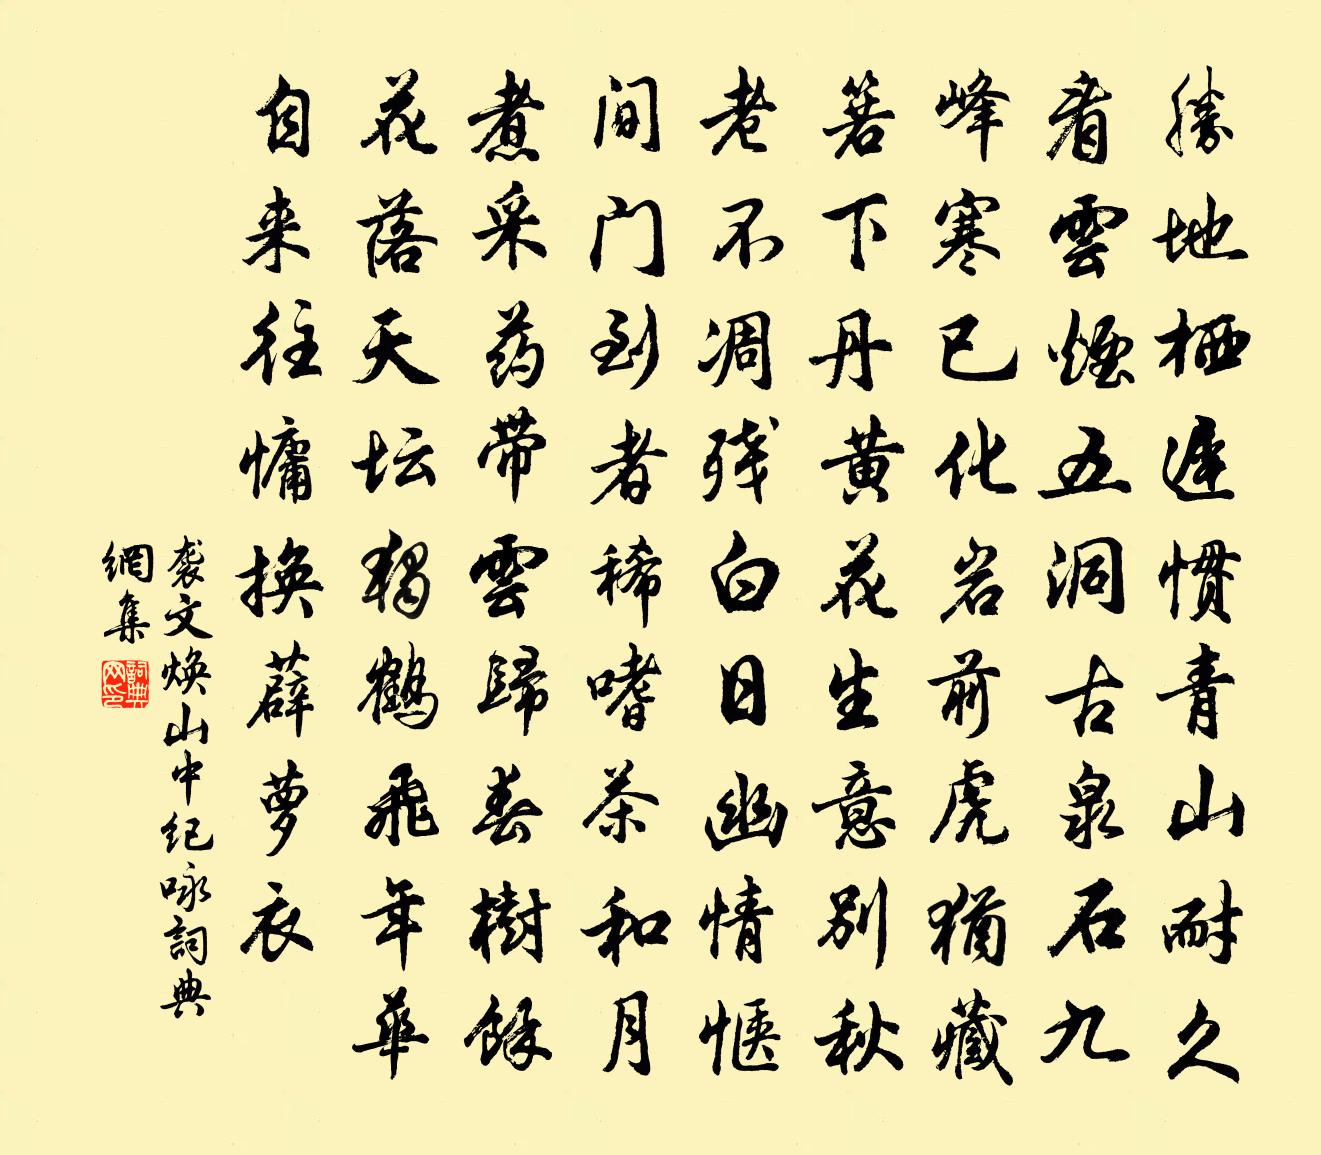 勝地栖遲慣青山耐久
看雲煙五洞古泉石九
峰寒已化岩前虎猶藏
箬下丹黄花生意别秋
老不凋残白日幽情惬
间门到者稀嗜茶和月
煮采药带雲歸春樹餘
花落天坛獨鶴飛年華
自来往慵换薜萝衣
袭文焕山中纪咏詞典
網集
詞典
网印